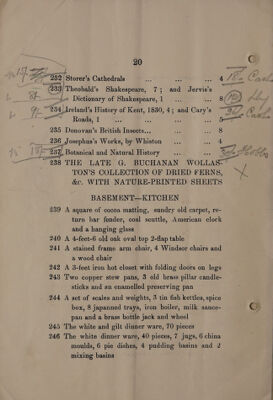 20
232 Storer's Cathedrals ... ... ... 4
233 Theobald's Shakespeare, 7 ; and Jervis's
Dictionary of Shakespeare, 1 ... ... 8
234 Ireland's History of Kent, 1830, 4 ; and Cary's
Roads, 1 ... ... ... ... 5
235 Donovan's British Insects... ... ... 8
236 Josephus's Works, by Whiston ... ... 4
237 Botanical and Natural History ... ...
238 THE LATE G. BUCHANAN WOLLAS-
TON'S COLLECTION OF DRIED FERNS,
&c. WITH NATURE-PRINTED SHEETS
BASEMENT—KITCHEN
239 A square of cocoa matting, sundry old carpet, re-
turn bar fender, coal scuttle, American clock
and a hanging glass
240 A 4-feet-6 old oak oval top 2-flap table
241 A stained frame arm chair, 4 Windsor chairs and
a wood chair
242 A 3-feet iron hot closet with folding doors on legs
243 Two copper stew pans, 3 old brass pillar candle-
sticks and an enamelled preserving pan
244 A set of scales and weights, 3 tin fish kettles, spice
box, 8 japanned trays, iron boiler, milk sauce-
pan and a brass bottle jack and wheel
245 The white and gilt dinner ware, 70 pieces
246 The white dinner ware, 40 pieces, 7 jugs, 6 china
moulds, 6 pie dishes, 4 pudding basins and 2
mixing basins